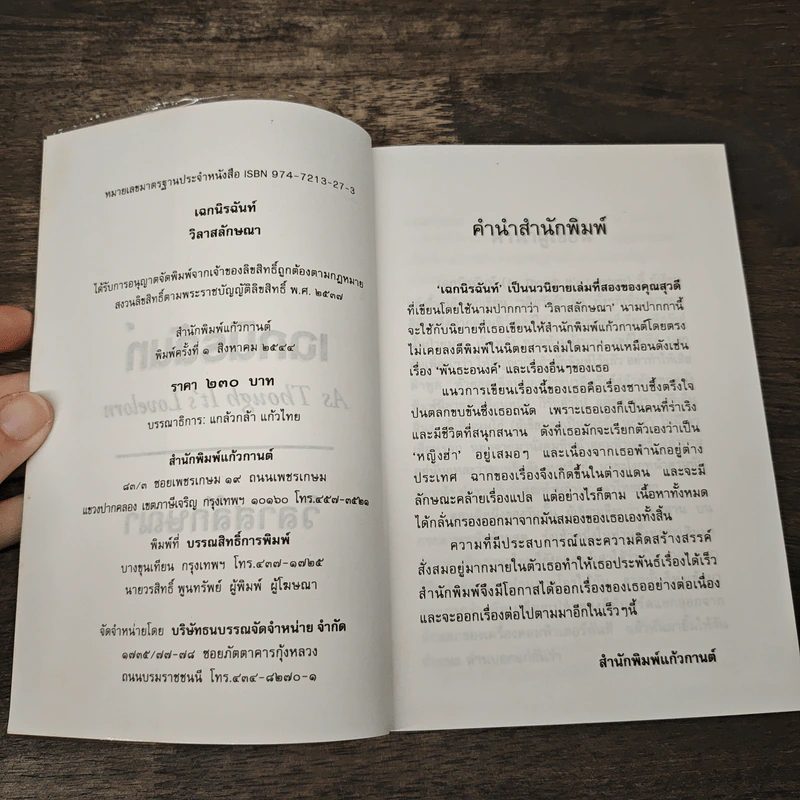 หมายเลขมาตรฐานประจำหนังสือ ISBN 974-7213-27-3
เฉกนิรฉันท์
วิลาสลักษณา
ได้รับการอนุญาตจัดพิมพ์จากเจ้าของลิขสิทธิ์ถูกต้องตามกฎหมาย
สงวนลิขสิทธิ์ตามพระราชบัญญัติลิขสิทธิ์ พ.ศ. ๒๕๓๗
สำนักพิมพ์แก้วกานต์
พิมพ์ครั้งที่ ๑ สิงหาคม ๒๕๔๔
ราคา ๒๓๐ บาท
บรรณาธิการ: แกล้วกล้า แก้วไทย
สำนักพิมพ์แก้วกานต์
๘๓/๓ ซอยเพชรเกษม ๑๙ ถนนเพชรเกษม
แขวงปากคลอง เขตภาษีเจริญ กรุงเทพฯ ๑๐๑๖๐ โทร.๔๕๗-๓๕๒๑
พิมพ์ที่ บรรณสิทธิ์การพิมพ์
บางขุนเทียน กรุงเทพฯ โทร.๔๓๗-๑๗๒๕
นายวรสิทธิ์ พูนทรัพย์ ผู้พิมพ์ ผู้โฆษณา
จัดจำหน่ายโดย บริษัทธนบรรณจัดจำหน่าย จำกัด
๑๗๓๕/๗๗-๗๘ ซอยภัตตาคารกุ้งหลวง
ถนนบรมราชชนนี โทร.๔๓๔-๘๒๗๐-๑
คำนำสำนักพิมพ์
'เฉกนิรฉันท์' เป็นนวนิยายเล่มที่สองของคุณสุวดี
ที่เขียนโดยใช้นามปากกาว่า 'วิลาสลักษณา' นามปากกานี้
จะใช้กับนิยายที่เธอเขียนให้สำนักพิมพ์แก้วกานต์โดยตรง
ไม่เคยลงตีพิมพ์ในนิตยสารเล่มใดมาก่อนเหมือนดังเช่น
เรื่อง 'พันธะอนงค์' และเรื่องอื่นๆของเธอ
แนวการเขียนเรื่องนี้ของเธอคือเรื่องซาบซึ้งตรึงใจ
ปนตลกขบขันซึ่งเธอถนัด เพราะเธอเองก็เป็นคนที่ร่าเริง
และมีชีวิตที่สนุกสนาน ดังที่เธอมักจะเรียกตัวเองว่าเป็น
'หญิงฮ่า' อยู่เสมอๆ และเนื่องจากเธอพำนักอยู่ต่าง
ประเทศ ฉากของเรื่องจึงเกิดขึ้นในต่างแดน และจะมี
ลักษณะคล้ายเรื่องแปล แต่อย่างไรก็ตาม เนื้อหาทั้งหมด
ได้กลั่นกรองออกมาจากมันสมองของเธอเองทั้งสิ้น
ความที่มีประสบการณ์และความคิดสร้างสรรค์
สั่งสมอยู่มากมายในตัวเธอทำให้เธอประพันธ์เรื่องได้เร็ว
สำนักพิมพ์จึงมีโอกาสได้ออกเรื่องของเธออย่างต่อเนื่อง
และจะออกเรื่องต่อไปตามมาอีกในเร็วๆนี้
สำนักพิมพ์แก้วกานต์